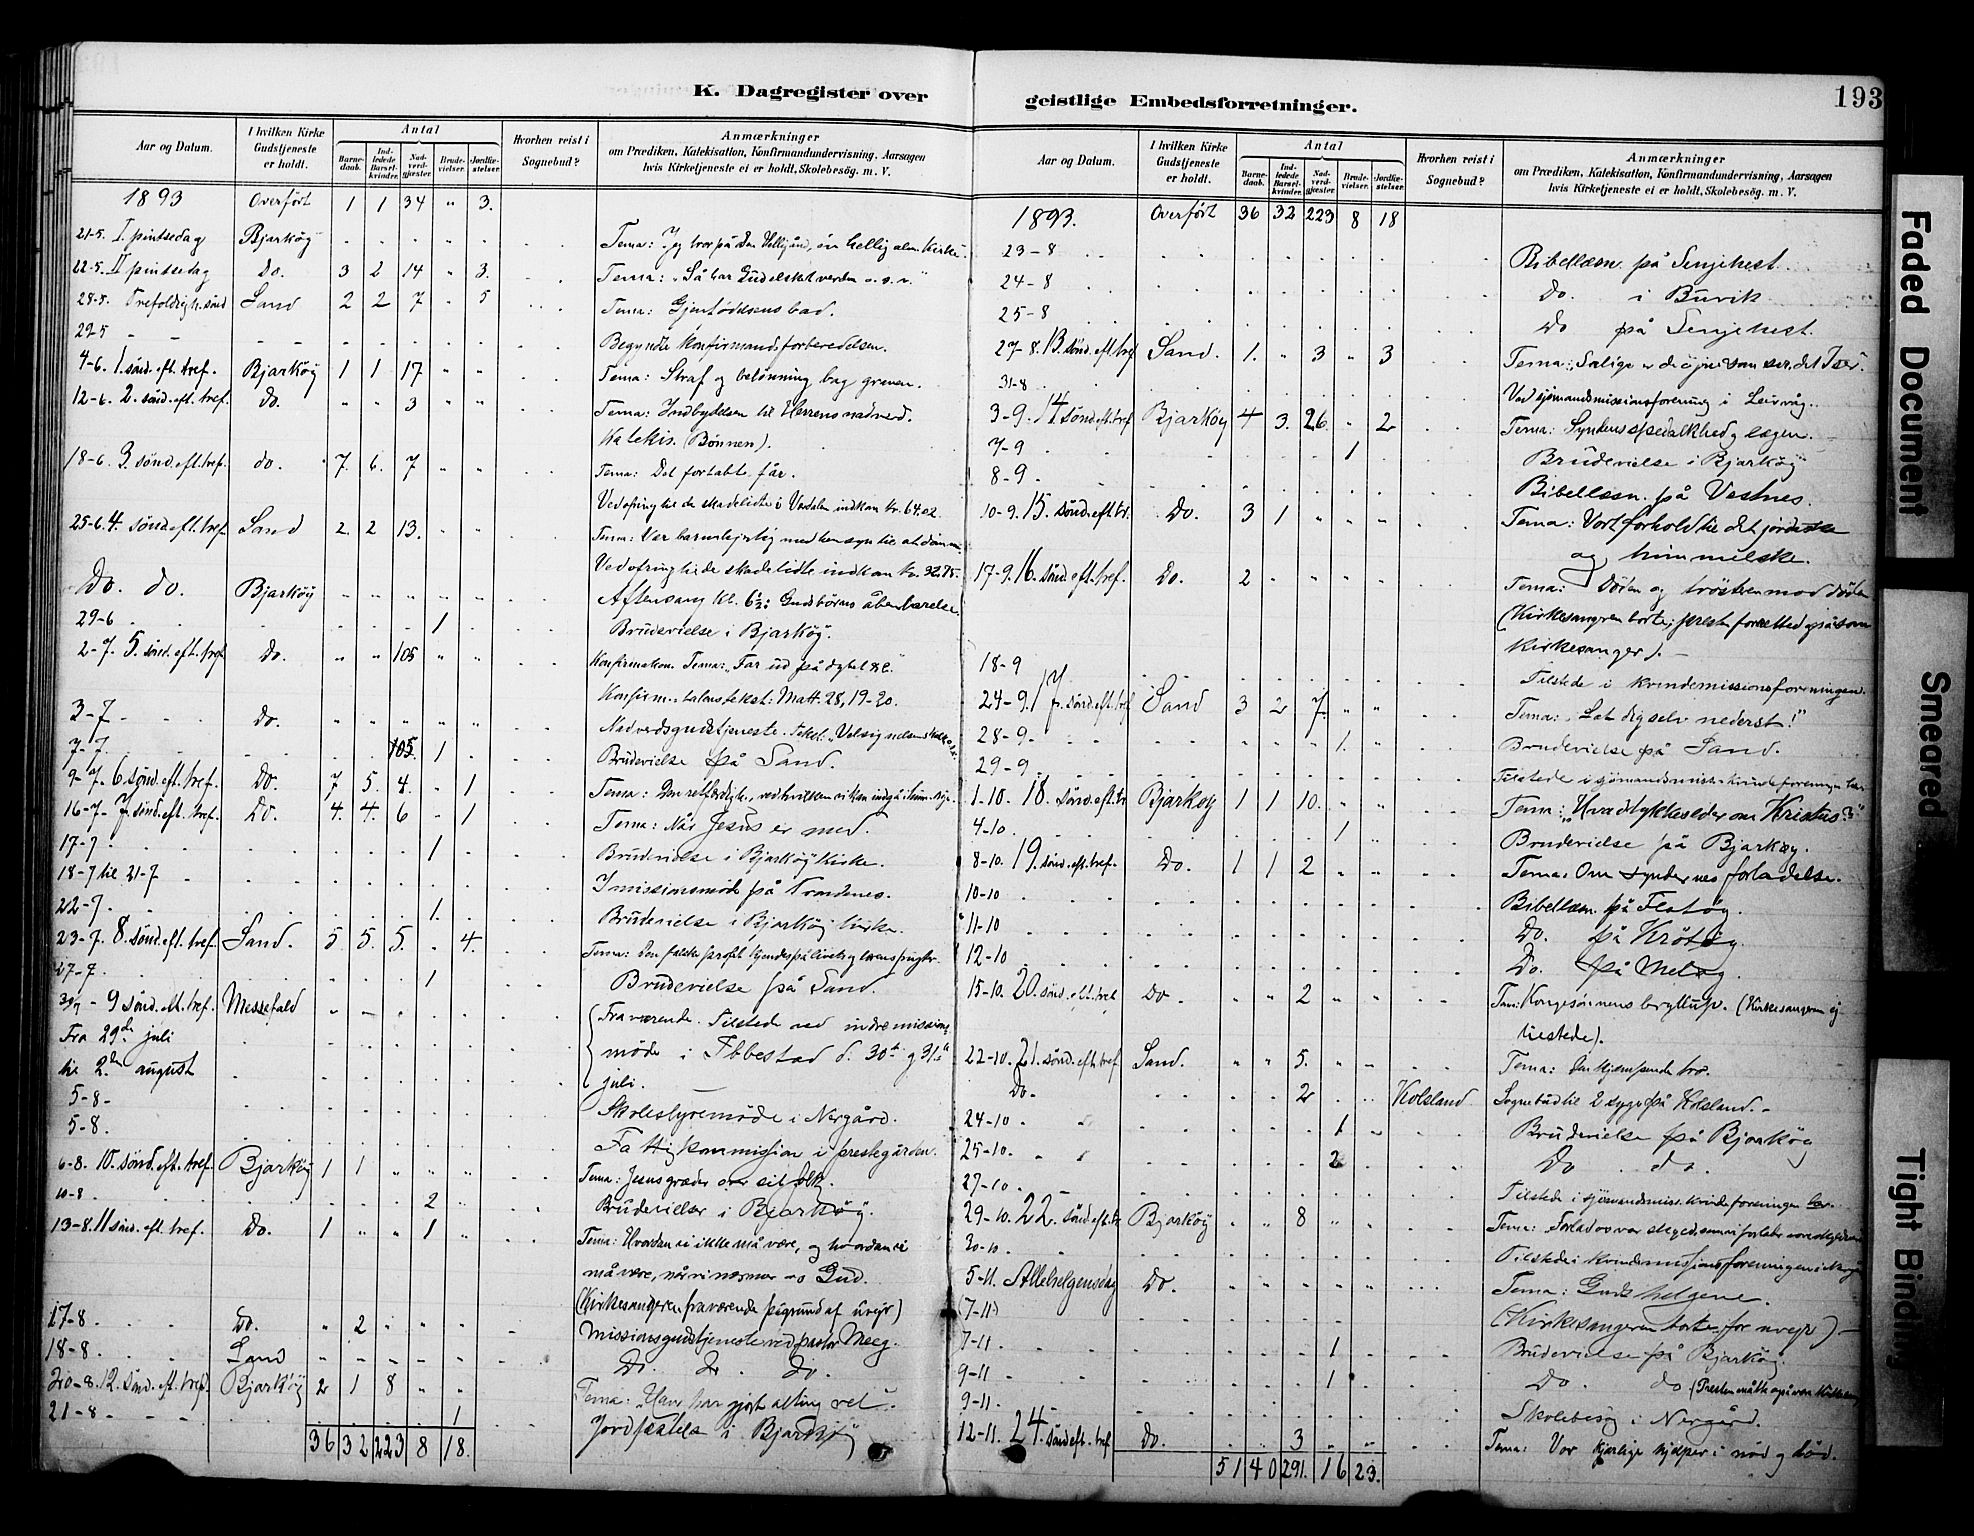 K. Dagregister over geistlige Embedsforretninger.
193
Aar og Datum. I hvilken Kirke Gudstjeneste er holdt. Antal Barne-daab. Ind-ledede Barsel-kvinder. Nad-verd-gjæster. Brude-vielser. Jordfæ-stelser. Hvorhen reist i Sognebud? Anmærkninger om Prædiken, Katekisation, Konfirmandundervisning, Aarsagen hvis Kirketjeneste ei er holdt, Skolebesøg. m. V.
1893 Overført 1 1 34 " 3.
21-5. I pintsedag Bjarkøy Tema: Jeg tror på den Helligånd, én hellig alm. Kirke
22-5. II pintsedag Do. 3 2 14 " 3. Tema: "Så har Gud elsket verden o.s.v."
28-5. Trefoldigh. sønd Sand 2 2 7 " 5 Tema: Gjenfødelsens bad.
29-5 Begyndte konfirmandforberedelsen.
4-6. 1. sønd. eft. tref. Bjarkøy 1 1 17 " " Tema: Straf og belønning bag graven.
12-6. 2. sønd. eft. tref. Do. " " 3 " " Tema: Indbydelsen til Herrens nadverd.
Katekis. (Bønnen).
18-6. 3. sønd. eft. tref. do. 7. 6. 7 " " Tema: Det fortabte får.
Ved ofring til de skadelidte i Verdalen indkom kr. 64.02
25-6. 4. sønd eft. tref. Sand 2. 2 13. Tema: Vær barmhjertig med hensyn til at dømme
Ved ofring til de skadelidte indkom kr. 32.75.
Do. do. Bjarkøy Aftensang kl. 6½: Guds børns åbenbarelse.
29-6 1 Brudevielse i Bjarkøy.
2-7. 5. sønd. eft. tref. Do. " " 105 " " Konfirmation. Tema: "Far ud på dybet &c."
Konfirm.-talens tekst: Matt. 28, 19-20.
3-7 Do. Nadverdsgudstjeneste.
7-7. 105. 1 Brudevielse på Sand.
9-7. 6 sønd. eft. tref. Do. 7 5. 4. " 1 Tema: Den retfærdigh., ved hvilken vi kan indgå i him. rige.
16-7. 7. sønd. eft. tref. Do. 4. 4. 6 " 1 Tema: Når Jesus er med.
17-7 1 Brudevielse i Bjarkøy Kirke.
18-7 til 21-7 I missionsmøde på Trondenes.
22-7. 1. Brudevielse i Bjarkøy kirke.
23-7. 8. sønd. eft. tref. Sand. 5 5. 5. 4. Tema: Den falske profet kjendes på livets og lærens frugter.
27-7. 1 Brudevielse på Sand.
30/7 - 9 sønd. eft. tref. Messefald Fraværende. Tilstede ved indremissions
Fra 29de juli møde i Ibbestad d. 30te og 31te
til 2den august juli.
5-8- Skolestyremøde i Nergård.
5-8. Fattigkommission i prestegården.
6-8. 10. sønd. eft. tref. Bjarkøy 1 1 Tema: Jesus græder over sit folk.
10-8. 2 Brudevielser i Bjarkøy.
13-8. 11 sønd. eft. tref. Do. 1 " " 1 " Tema: Hvordan vi ikke må være, og hvordan vi
må være, når vi nærmer os Gud.
(Kirkesangeren fraværende på grund af uvejr)
17-8 Do. " 2 Missionsgudstjeneste ved pastor Meeg.
18-8. Sand Do. Do. Do.
20-8. 12. sønd. eft. tref. Bjarkøy 2 1 8 " " Tema: "Han har gjort alting vel".
21-8 1 Jordfæstelse i Bjarkøy
36 32 223 8 18.
Aar og Datum. I hvilken Kirke Gudstjeneste er holdt. Antal Barne-daab. Ind-ledede Barsel-kvinder. Nad-verd-gjæster. Brude-vielser. Jordfæ-stelser. Hvorhen reist i Sognebud? Anmærkninger om Prædiken, Katekisation, Konfirmandundervisning, Aarsagen hvis Kirketjeneste ei er holdt, Skolebesøg. m. V.
1893. Overført 36 32 223 8 18
23-8 Bibellæsn. på Senjehest.
24-8 Do. i Buvik.
25-8 Do på Senjehest.
27-8. 13. sønd. eft. tref Sand. 1. " 3 " 3 Tema: Salige er de øjne som ser, det I ser.
31-8 Ved sjømandsmissionsforening i
3-9. 14 sønd. eft. tref Bjarkøy 4 3. 26. " 2 Tema: Syndens spedalskhed og lægen.
7-9 1 Brudevielse i Bjarkøy
8-9 Bibellæsn. på Vestnes.
10-9. 15. sønd. eft. tr. Do. 3 1 " " " Tema: Vort forhold til det jordiske
og himmelske.
17-9. 16. sønd. eft. tref. Do. 2 Tema: Døden og trøsten mod døden
(Kirkesangeren borte; presten forrettede også som
Kirkesanger).-
18-9 Tilstede i kvindemissionsforeningen.
24-9. 17. sønd. eft. tref Sand 3 2 7. " " Tema: "Sæt dig selv nederst!"
28-9. 1. Brudevielse på Sand.
29-9 Tilstede i sjømandsmiss. kvindeforeningen
1-10. 18. sønd. eft. tr Bjarkøy 1 1 10. Tema: "Hvad tykkes eder om Kristus?"
4-10. 1 Brudevielse på Bjarkøy.
8-10. 19. sønd. eft. tref. Do. 1 1 2 Tema: Om syndernes forladelse.
10-10 Bibellæsn. på Flatøy.
11-10 Do. på Krøtøy
12-10 Do. på Meløy.
15-10. 20. sønd. eft. tref Do. " " 2 Tema: Kongesønnens bryllup. (Kirkesangeren ej
tilstede).
22-10. 21. sønd. eft. tref Sand. " " 5. Tema: Den kjæmpende tro.
Do. 2 Kolsland Sognebud til 2 syge på Kolsland.-
24-10 1 Brudevielse på Bjarkøy
25-10. 2 Do do.
27-10 Tilstede i sjømandsmiss. kvindeforeningen
29-10. 22. sønd. eft. tr Bjarkøy " 8 Tema: Forlad os vor skyld, som vi forlade vore skyldnere
30-10 Tilstede i kvindemissionsforeningen i
5-11. Allehelgensdag Do. Tema: Guds helgene.
(7-11) (Kirkesangeren borte for uvejr)-
7-11 1 Brudevielse på Bjarkøy.
9-11 1 Do. do (Presten måtte også være Kirkesanger)
9-11. Skolebesøg i Nergård.
12-11. 24. sønd eft. tref Do. 3 Tema: Vor kjærlige hjælper i nød og død.
51 40 291. 16 23.
Faded Document
Smeared
Tight Binding